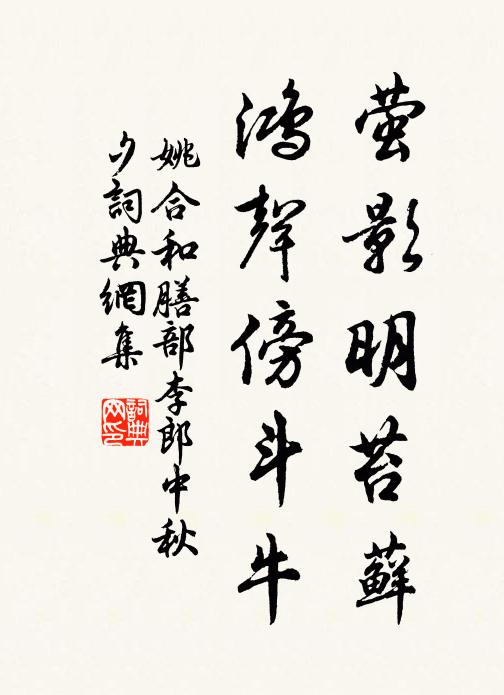 萤影明苔蘚
鴻聲傍斗牛
姚合和膳部李郎中秋
夕詞典網集
詞典
网印